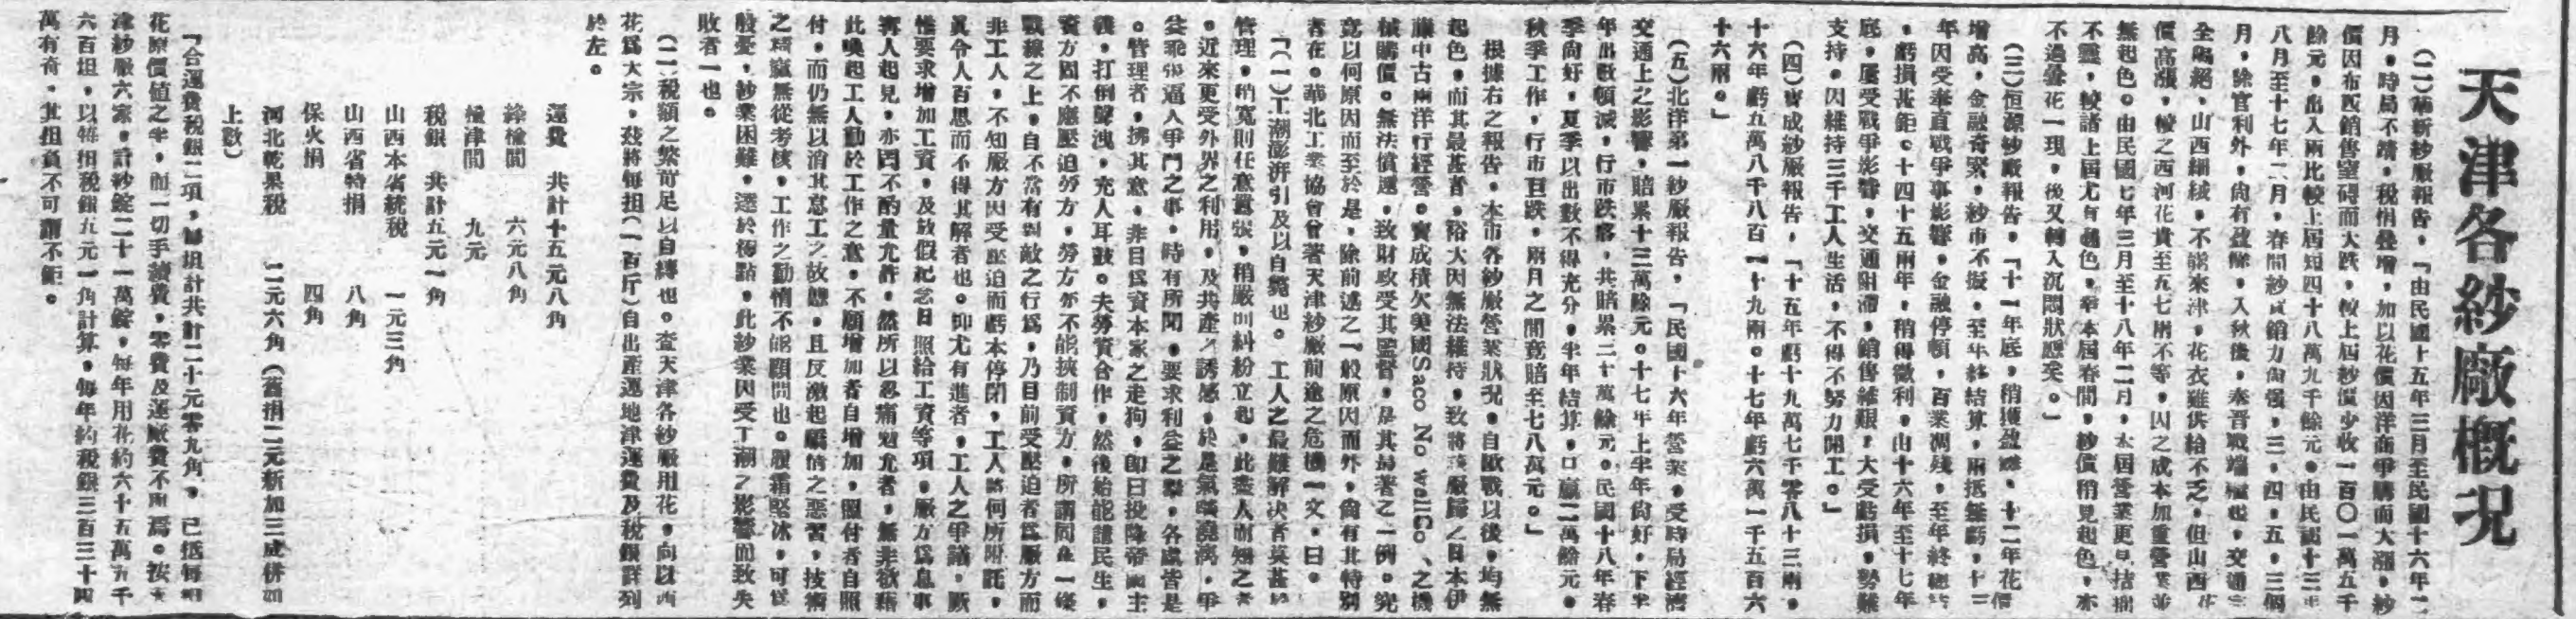 天津各紗廠概況
(二)華新紗廠報告，「由民國十五年三月至民國十六年二
月，時局不靖，稅捐疊增，加以花價因洋商爭購而大漲，紗
價因布疋銷售窒碍而大跌，較上屆紗價少收一百〇一萬五千
餘元，出入兩比較上屆短四十八萬九千餘元。由民國十三年
八月至十七年二月，春間紗質銷力尙强，三，四，五，三個
月，除官利外，尙有盈餘，入秋後，奉晋戰端，交通
全斷絕，山西細絨，不能來津，花衣雖供給不乏，但山西花
價高漲，較之西河花貴至五七兩不等，因之成本加重營業並
無起色。由民國七年三月至十八年二月，本屆營業更見拮据
不靈，較諸上屆尤有遜色，幸本屆春間，紗價稍見起色，亦
不過曇花一現，後又轉入沉悶狀態矣。」
(三)恒源紗廠報告，「十一年底，稍獲盈餘，十二年花價
增高，金融奇緊，紗市不振，至年終結算，兩抵無虧，十三
年因受奉直戰爭事影響，金融停頓，百業凋殘，至年終
，虧損甚鉅。十四十五兩年，稍得微利，由十六年至十七年
底，屢受戰爭影響，交通阻滯，銷售維艱，大受虧損，勢難
支持，因維持三千工人生活，不得不努力開工。」
(四)寶成紗廠報告，「十五年虧十九萬七千零八十三兩，
十六年虧五萬八千八百一十九兩。十七年虧六萬一千五百六
十六兩。」
(五)北洋第一紗廠報告，「民國十六年營業，受時局經濟
交通上之影響，賠累十三萬餘元。十七年上半年尙好，下半
年出數頓減，行市跌落，共賠累二十萬餘元。民國十八年春
季尙好，夏季以出數不得充分，半年結算，口贏二萬餘元。
秋季工作，行市日跌，兩月之間竟賠至七八萬元。」
根據右之報告，本市各紗廠營業狀况，自歐戰以後，均無
起色，而其最甚者，裕大因無法維持，致將該廠歸之日本伊
藤中古兩洋行經營。寶成積欠美國Saco No wellCo、之機
械購價。無法償還，致財政受其監督，是其最著之一例。究
竟以何原因而至於是，除前述之一般原因而外，尙有其特別
者在。華北工業協會曾著天津紗廠前途之危機一文，曰。
「(一)工潮澎湃引及以自斃也。工人之最難解决者莫甚於
管理，稍寬則任意囂張，稍嚴則糾紛立起，此盡人而知之者
。近來更受外界之利用，及共產之誘惑，於是氣囂澆漓，爭
益乖張逼人爭鬥之事，時有所聞，要求利益之聲，各處皆是
。管理者，拂其意，非目爲資本家之走狗，卽曰投降帝國主
義，打倒聲洩，充人耳鼓。夫勞資合作，然後始能謀民生，
資方固不應壓迫勞方，勞方亦不能挾制資方，所謂同在一條
戰線之上，自不當有對敵之行爲，乃目前受壓迫者爲廠方而
非工人，不知廠方因受壓迫而虧本停閉，工人將何所附託，
眞令人百思而不得其解者也。抑尤有進者，工人之爭議，厥
惟要求增加工資，及放假紀念日照給工資等項，廠方爲息事
寗人起見，亦固不酌量允許，然所以忍痛勉允者，無非欲藉
此喚起工人勤於工作之意，不願增加者自增加，照付者自照
付，而仍無以消其怠工之故態，且反激起驕惰之惡習，技術
之精窳無從考核，工作之勤惰不能顧問也。履霜堅冰，可爲
殷憂，紗業困難，達於極點，此紗業因受工潮之影響而致失
敗者一也。
(二)稅額之繁苛足以自縛也。查天津各紗廠用花，向以西
花爲大宗，茲將每担(一百斤)自出產運地津運費及稅銀詳列
於左。
運費　共計十五元八角
絳榆間　六元八角
榆津間　九元
稅銀　共計五元一角
山西本省統稅　一元三角
山西省特捐　八角
保火捐　四角
河北乾果稅　二元六角(舊捐二元新加三成併如
上數)
「合運費稅銀二項，每担計共計二十元零九角，已抵每担
花原價值之半，而一切手續費，零費及運廠費不與焉。按天
津紗廠六家，計紗錠二十一萬錠，每年用花約六十五萬五千
六百担，以每担稅銀五元一角計算，每年約稅銀三百三十四
萬有奇，其担負不可謂不鉅。